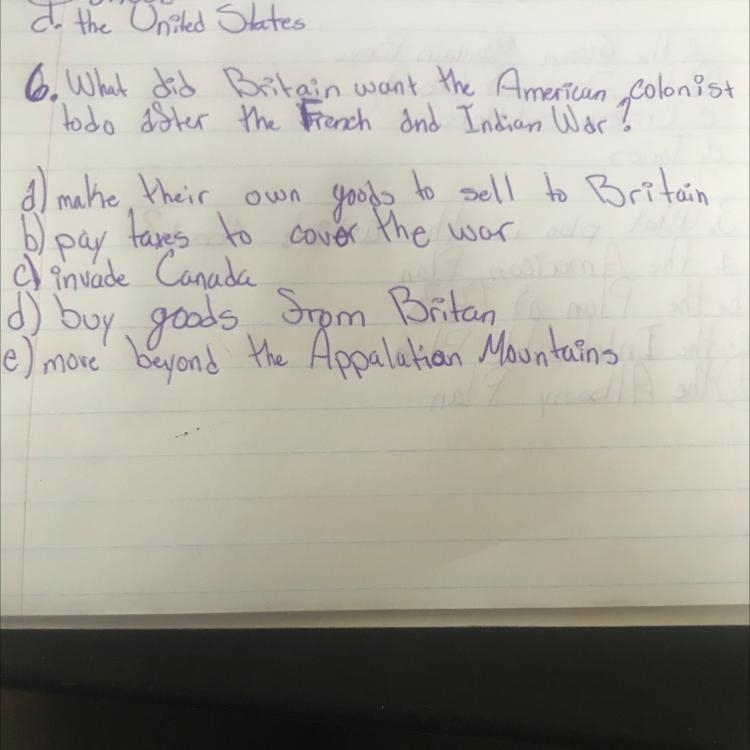 d. the United States
6. What did Britain want the American colonist
todo after the French and Indian War?
a) make their own goods to sell to Britain
b) pay taxes to cover the war
c) invade Canada
d) buy goods from Britan
e) move beyond the Appalatian Mountains